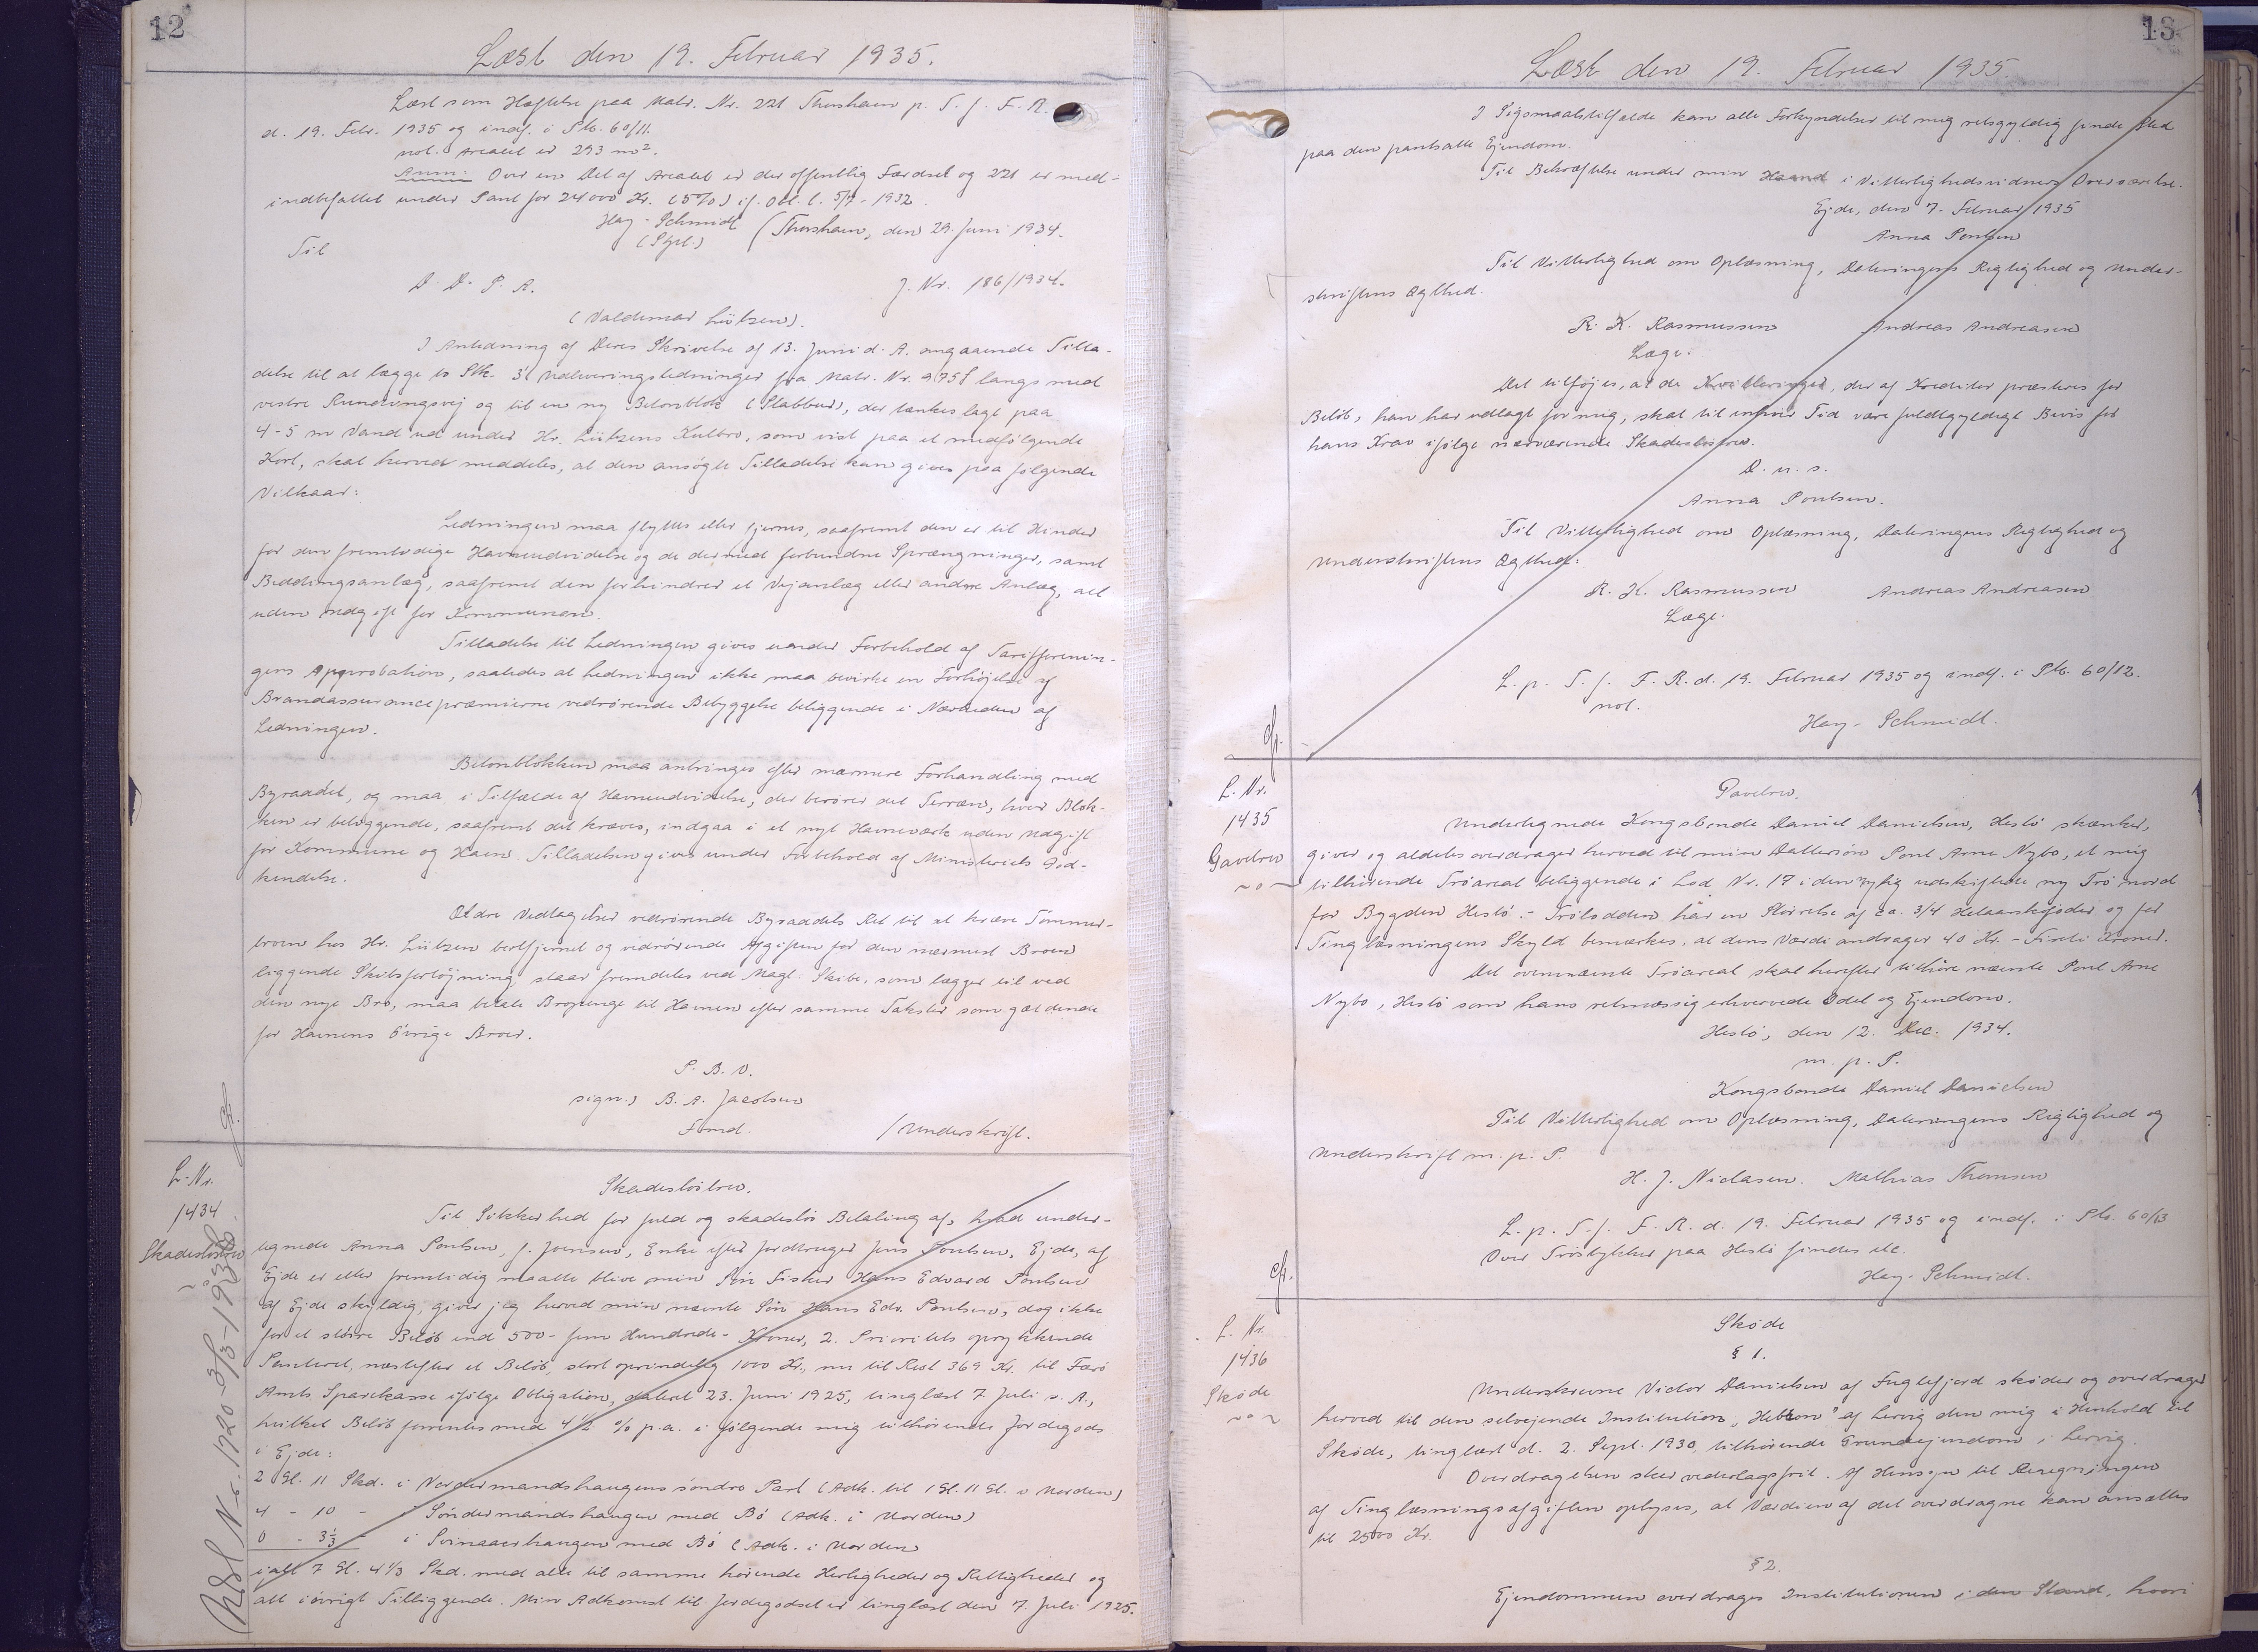 12
Læst den 19. Februar 1935.
Læst som Hæftelse paa Matr. Nr. 221 Thorshavn p. T. f. F. R.
d. 19. Febr. 1935 og indf. i Ptb. 60/11.
not. Arealet er 293 m².
Anm: Over en Del af Arealet er der offentlig Færdsel og 221 er med-
indbefattet under Pant for 24000 Kr. (5%) if. Obl. l. 5/7-1932.
Hey-Schmidt
(Stpl.) / Thorshavn, den 29. Juni 1934.
Til
D. D. P. A. J. Nr. 186/1934.
(Valdemar Lützen).
I Anledning af Deres Skrivelse af 13. Juni d. A. angaaende Tilla-
delse til at lægge to Stk. 3" Udleveringsledninger fra Matr. Nr. 975f langs med
vestre Rundingsvej og til en ny Betonblok (Stabbur), der tænkes lagt paa
4-5 m Vand ud under Hr. Lützens Kulbro, som vist paa et medfølgende
Kort, skal herved meddeles, at den ansøgte Tilladelse kan gives paa følgende
Vilkaar:
Ledningen maa flyttes eller fjernes, saafremt den er til Hinder
for den fremtidige Havneudvidelse og de dermed forbundne Sprængninger, samt
Beddingsanlæg, saafremt den forhindrer et Vejanlæg eller andre Anlæg, alt
uden Udgift for Kommunen.
Tilladelse til Ledningen gives under Forbehold af Tarifforenin-
gens Approbation, saaledes at Ledningen ikke maa bevirke en Forhøjelse af
Brandassurancepræmierne vedrørende Bebyggelse beliggende i Nærheden af
Ledningen.
Betonblokken maa anbringes efter nærmere Forhandling med
Byraadet, og maa i Tilfælde af Havneudvidelse, der berører det Terræn, hvor Blok-
ken er beliggende, saafremt det kræves, indgaa i et nyt Havneværk uden Udgift
for Kommune og Havn. Tilladelsen gives under Forbehold af Ministeriets God-
kendelse.
Ældre Vedtagelser vedrørende Byraadets Ret til at kræve Tømmer-
broen hos Hr. Lützen bortfjernet og vedrørende Afgiften for den nærmest Broen
liggende Skibsfortøjning staar fremdeles ved Magt. Skibe, som lægger til ved
den nye Bro, maa betale Bropenge til Havnen efter samme Takster som gældende
for Havnens övrige Broer.
P. B. V.
sign.) B. A. Jacobsen
Fmd. / Underskrift.
cfr.
L. Nr.
1434
Skadesløsbrev
Skadesløsbrev.
Til Sikkerhed for fuld og skadesløs Betaling af, hvad under-
tegnede Anna Poulsen, f. Joensen, Enke efter Jordbruger Jens Poulsen, Ejde, af
Ejde er eller fremtidig maatte blive min Søn Fisker Hans Edvard Poulsen
af Ejde skyldig, giver jeg herved min nævnte Søn Hans Edv. Poulsen, dog ikke
for et större Beløb end 500- fem Hundrede- Kroner, 2. Prioritets oprykkende
Panteret, næstefter et Beløb, stort oprindelig 1000 Kr., nu til Rest 369 Kr. til Færø
Amts Sparekasse ifölge Obligation, dateret 23. Juni 1925, tinglæst 7 Juli s. A.,
hvilket Beløb forrentes med 4½ % p.a. i følgende mig tilhörende Jordegods
i Ejde:
2 Gl. 11 Skd. i Nordermandshaugens söndre Part (Adk. til 1 Gl. 11 Sk. i Norden)
4 - 10 - i Söndermandshaugen med Bö (Adk. i Norden)
0 - 3⅓ - i Svinaaerhaugen med Bö (Adk. i Norden
ialt 7 Gl. 4⅓ Skd. med alle til samme hörende Herligheder og Rettigheder og
alt iövrigt Tilliggende. Min Adkomst til Jordegodset er tinglæst den 7. Juli 1925.
13
Læst den 19. Februar 1935.
I Sögsmaalstilfælde kan alle Forkyndelser til mig retsgyldig finde Sted
paa den pantsatte Ejendom.
Til Bekræftelse under min Haand i Vitterlighedsvidners Overværelse.
Ejde, den 7. Februar 1935
Anna Poulsen
Til Vitterlighed om Oplæsning, Dateringens Rigtighed og Under-
skriftens Ægthed.
R. K. Rasmussen Andreas Andreasen
Læge.
Det tilföjes, at de Kvitteringer, der af Kreditor præsteres for
Beløb, han har udlagt for mig, skal til enhver Tid være fuldtgyldigt Bevis for
hans Krav ifølge nærværende Skadesløsbrev.
D. u. s.
Anna Poulsen.
Til Vitterlighed om Oplæsning, Dateringens Rigtighed og
Underskriftens Ægthed:
R. K. Rasmussen Andreas Andreasen
Læge.
L. p. T. f. F. R. d. 19. Februar 1935 og indf. i Ptb. 60/12.
not.
Hey-Schmidt.
cfr.
L. Nr.
1435
Gavebrev
Gavebrev.
Undertegnede Kongsbonde Daniel Danielsen, Hestö skænker,
giver og aldeles overdrager herved til min Dattersön Poul Arne Nybo, et mig
tilhörende Tröareal beliggende i Lod Nr. 17 i den nylig udskiftede ny Trö nord
for Bygden Hestö.- Trölodden har en Störrelse af ca. 3/4 Helaarsfoder og for
Tinglæsningens Skyld bemærkes, at dens Værdi andrager 40 Kr.- Firti Kroner.
Det ovennævnte Tröareal skal herefter tilhöre nævnte Poul Arne
Nybo, Hestö som hans retmæssig erhvervede Odel og Ejendom.
Hestö, den 12. Dec. 1934.
m. p. P.
Kongsbonde Daniel Danielsen
Til Vitterlighed om Oplæsning, Dateringens Rigtighed og
Underskrift m. p. P.
H. J. Niclasen. Mathias Thomsen
L. p. T. f. F. R. d. 19. Februar 1935 og indf. i Ptb. 60/13
Over Tröstykker paa Hestö findes etc.
Hey-Schmidt.
cfr.
L. Nr.
1436
Skøde
Skøde
§ 1.
Underskrevne Victor Danielsen af Fuglefjord skøder og overdrager
herved til den selvejende Institution „Hebron" af Lervig den mig i Henhold til
Skøde, tinglæst d. 2. Sept. 1930, tilhørende Grundejendom i Lervig.
Overdragelsen sker vederlagsfrit. Af Hensyn til Beregningen
af Tinglæsningsafgiften oplyses, at Værdien af det overdragne kan ansættes
til 2500 Kr.
§ 2.
Ejendommen overdrages Institutionen i den Stand, hvori